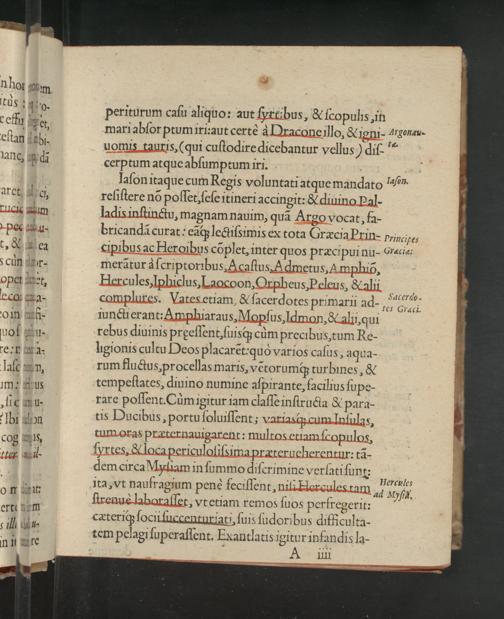 periturum casu aliquo: aut syrtibus, & scopulis, in
mari absorptum iri: aut certè à Dracone illo, & igni-
uomis tauris, (qui custodire dicebantur vellus) dis-
cerptum atque absumptum iri.
Iason itaque cum Regis voluntati atque mandato
resistere nō posset, sese itineri accingit: & diuino Pal-
ladis instinctu, magnam nauim, quā Argo vocat, fa-
bricandā curat: eāq; lectissimis ex tota Græcia Prin-
cipibus ac Heroibus cōplet, inter quos præcipui nu-
merātur à scriptoribus, Acastus, Admetus, Amphiō,
Hercules, Iphiclus, Laocoon, Orpheus, Peleus, & alii
complures. Vates etiam, & sacerdotes primarii ad-
iuncti erant: Amphiaraus, Mopsus, Idmon, & alii, qui
rebus diuinis preessent, suisq; cùm precibus, tum Re-
ligionis cultu Deos placarēt: quò varios casus, aqua-
rum fluctus, procellas maris, vētorumq; turbines, &
tempestates, diuino numine aspirante, facilius supe-
rare possent. Cùm igitur iam classe instructa & para-
tis Ducibus, portu soluissent; variasq; cum Insulas,
tum oras præternauigarent: multos etiam scopulos,
syrtes, & loca periculosissima præterueherentur: tā-
dem circa Mysiam in summo discrimine versati sunt:
ita, vt naufragium penè fecissent, nisi Hercules tam
strenuè laborasset, vt etiam remos suos perfregerit:
cæteriq; socii succenturiati, suis sudoribus difficulta-
tem pelagi superassent. Exantlatis igitur infandis la-
A iiii
Argonau-
tæ.
Iason.
Principes
Græciæ.
Sacerdo-
tes Græci.
Hercules
ad Mysiā.